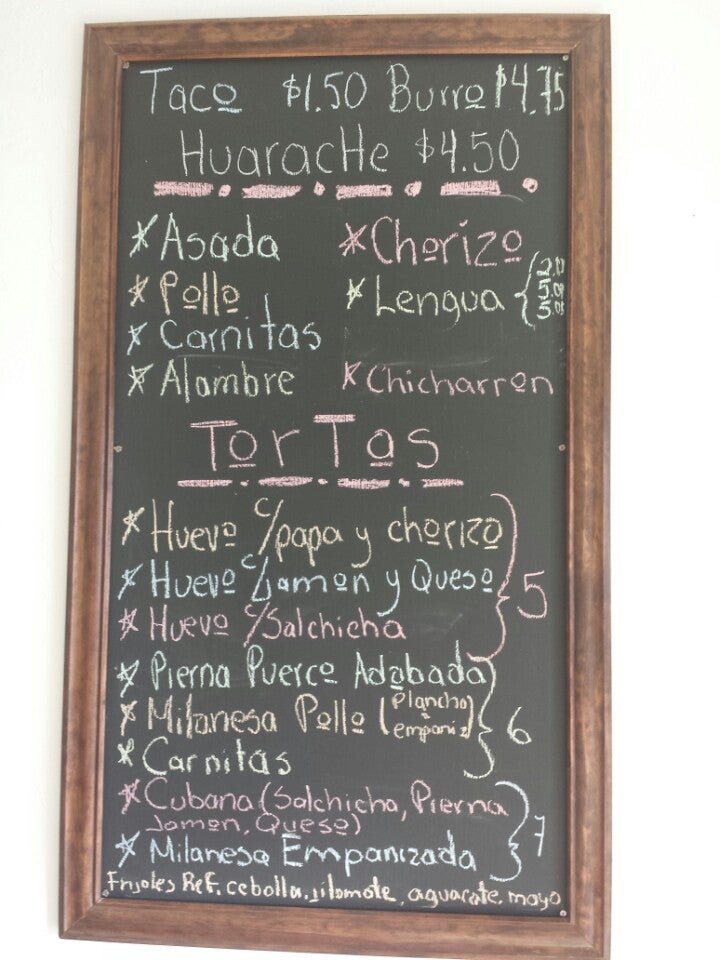 Taco $1.50 Burro $4.75
Huarache $4.50
* Asada
* Chorizo
* Pollo
* Lengua {
* Carnitas
* Alambre
* Chicharron
Tortas
* Huevo c/papa y chorizo
* Huevo c/Jamon y Queso
* Huevo c/Salchicha
} 5
* Pierna Puerco Adobada
* Milanesa Pollo (plancha
empaniz)
* Carnitas
} 6
* Cubana (Salchicha, Pierna
Jamon, Queso)
* Milanesa Empanizada
} 7
Frijoles Ref. cebolla, jitomate, aguacate, mayo